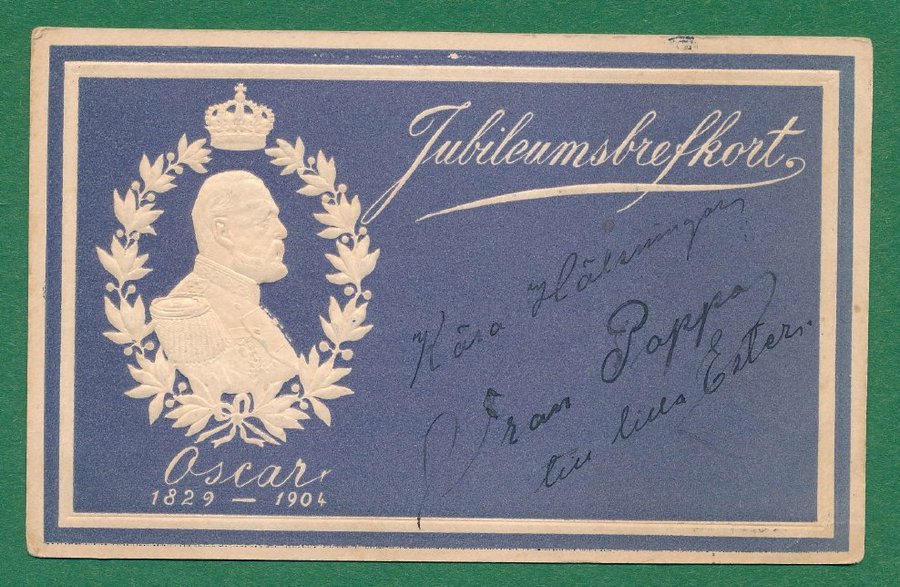 Jubileumsbrefkort.
Kära Hälsningar
Fran Poppa
till lilla Ester.
Oscar.
1829 — 1904